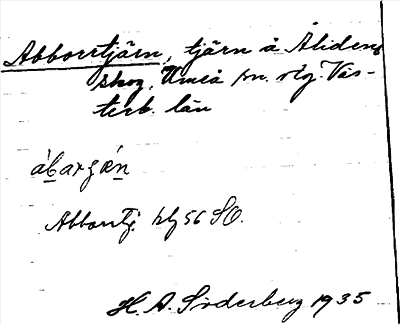 Abborrtjärn, tjärn å Ålidens
skog, Umeå sn. o lg. Väs-
terb. län
ábargǽn
Abborrtj. blg 56 SO.
H. A. Söderberg 1935